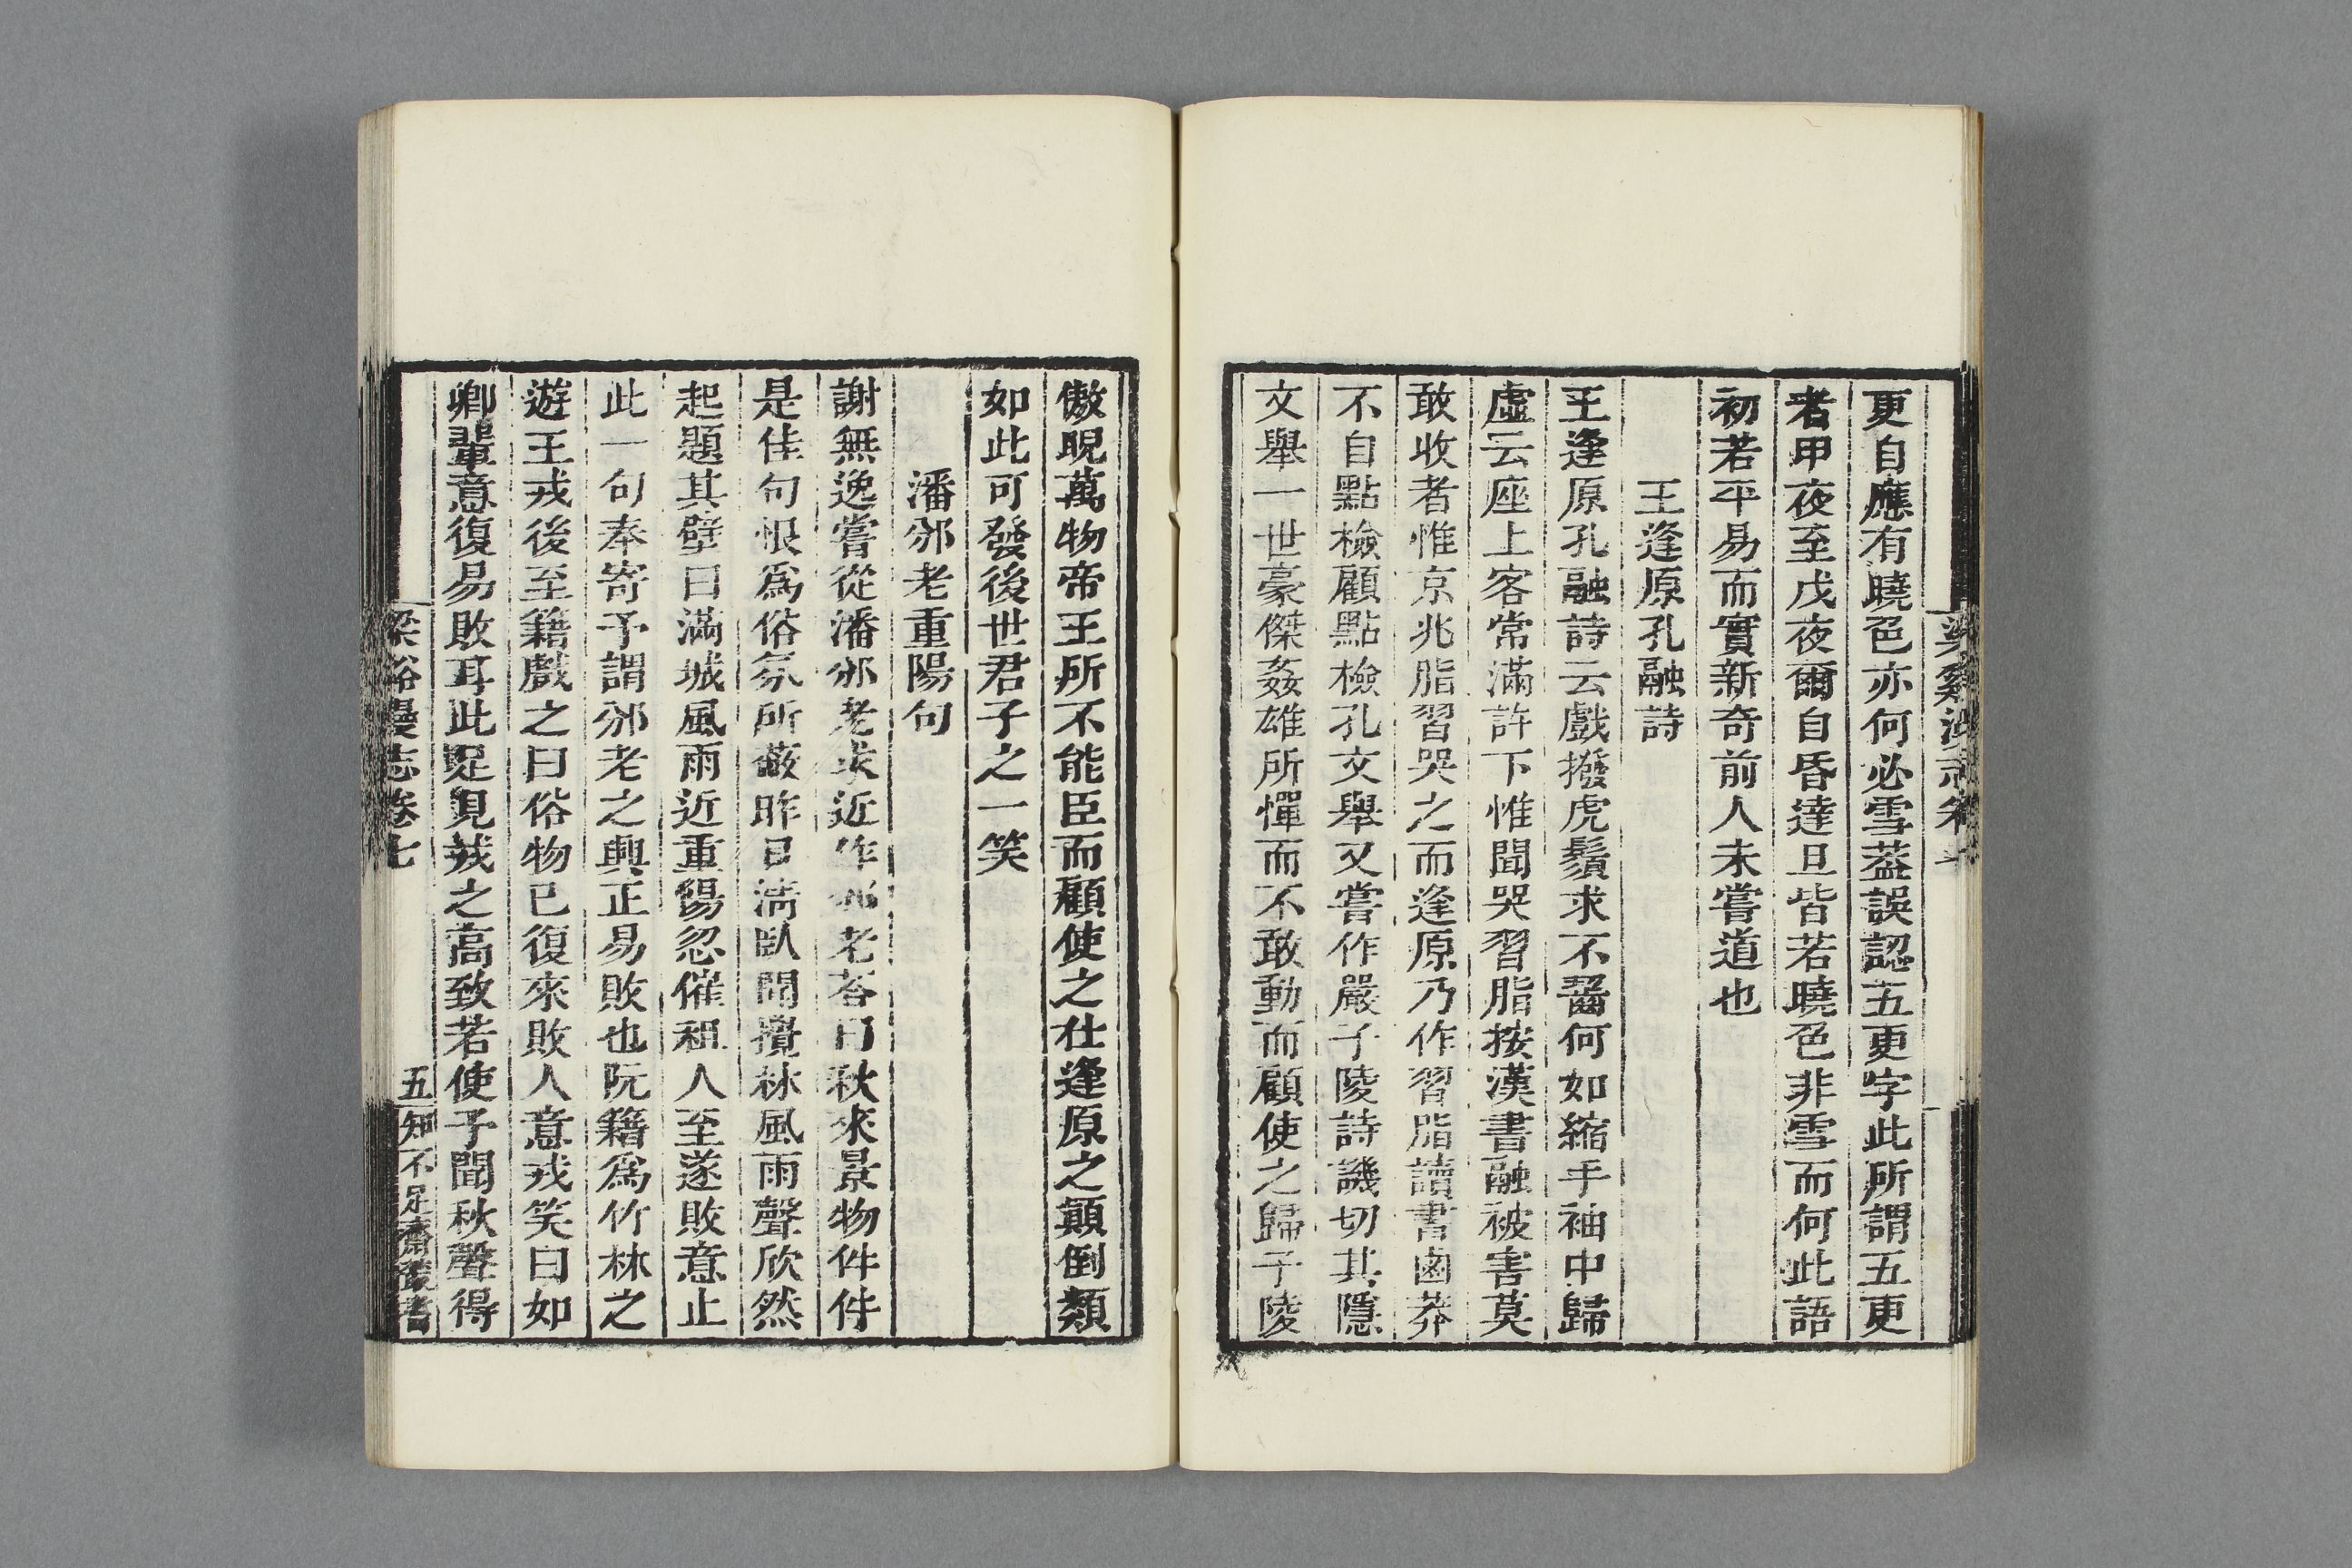 更自應有曉色亦何必雪葢誤認五更字此所謂五更
者甲夜至戊夜爾自昏達旦皆若曉色非雪而何此語
初若平易而實新奇前人未嘗道也
王逢原孔融詩
王逢原孔融詩云戲撥虎鬚求不齧何如縮手袖中歸
虛云座上客常滿許下惟聞哭習脂按漢書融被害莫
敢收者惟京兆脂習哭之而逢原乃作習脂讀書鹵莽
不自點檢顧點檢孔文舉又嘗作嚴子陵詩譏切其隱
文舉一世豪傑姦雄所憚而不敢動而顧使之歸子陵
傲睨萬物帝王所不能臣而顧使之仕逢原之顛倒類
如此可發後世君子之一笑
潘邠老重陽句
謝無逸嘗從潘邠老求近作邠老荅曰秋來景物件件
是佳句恨爲俗氛所蔽昨日清臥聞攪林風雨聲欣然
起題其壁曰滿城風雨近重陽忽催租人至遂敗意止
此一句奉寄予謂邠老之興正易敗也阮籍爲竹林之
遊王戎後至籍戲之曰俗物已復來敗人意戎笑曰如
卿輩意復易敗耳此足見戎之高致若使予聞秋聲得
梁谿漫志卷七
五
知不足齋叢書